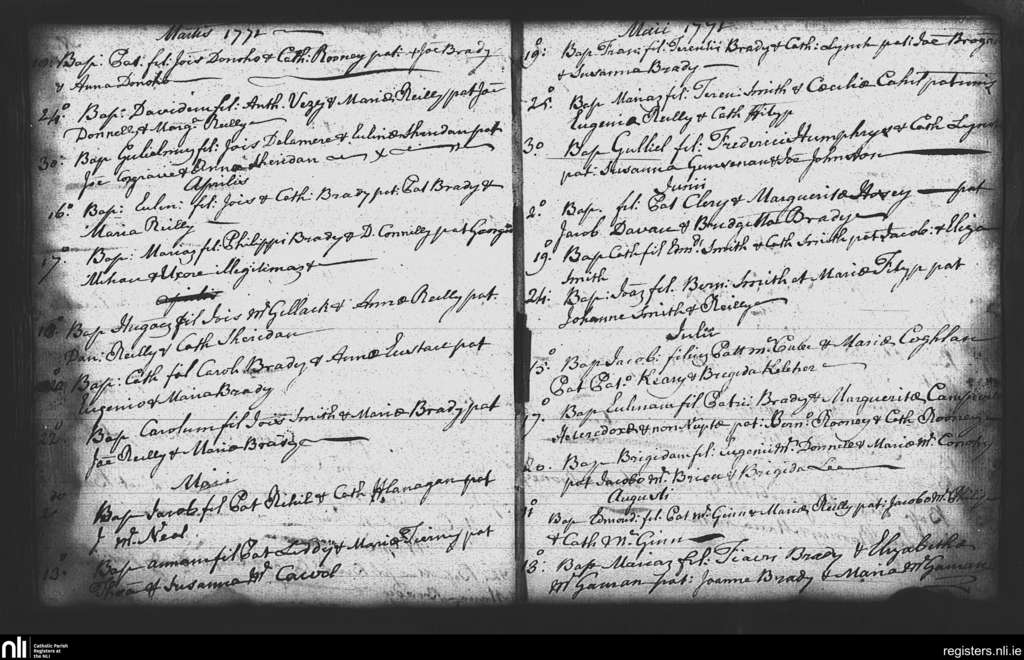 Martis 1772
Bap: Pat: fil: Jois Donoho & Cath: Rooney pat: Joe Brady
& Anna Donoho
24° Bap: Davidem fil: Anth: Vezey & Mariæ Reilly pat Jac
Donnelly & Marg: Reilly
30: Bap Gulielmum fil: Jois Delamere & Eulinæ Sheridan pat
Joe Cosgrave & Anna Sheridan
Aprilis
16° Bap: Eulin: fil: Jois & Cath: Brady pat: Pat Brady &
Maria Reilly
17° Bap: Mariam fil: Philippi Brady & D. Connilly pat Georgio
& Uxore Illegitimam
Aprilis
18° Bap Hugonem fil Jois McGillack & Annæ Reilly pat.
Dan: Reilly & Cath Sheridan
Bap: Cath fil Caroli Brady & Annæ Eustace pat
Eugenio & Maria Brady
22° Bap Carolum fil Jois Smith & Mariæ Brady pat
Joe Reilly & Maria Brady
Maii
10 Bap Jacob fil Pat & Cath Flanagan pat
J McNeal
13° Bap annam fil Pat Leddy & Mariæ Tierny pat
& Susanna Mc Cawl
Maii 1772
19° Bap Fran: fil: Terentii Brady & Cath: Lynch pat: Joe
& Susanna Brady
25° Bap Mariam fil: Feren: Smith & Cæciliæ Cahil patrinis
Eugenia Reilly & Cath Fitzp
30 Bap Gulliel fil: Frederici Humphrys & Cath Lynch
pat: Susanna & Joe Johnston
Junii
2° Bap. fil: Pat Clery & Margueritæ Hosey pat
Jacob Davau & Bridgetta Brady
19° Bap Cath fil Edm: Smith & Cath Smith pat Jacob: & Eliza
Smith
24: Bap: Joan fil: Bern: Smith et Mariæ Fitzp pat
Johanne Smith & Reilly
Julii
15° Bap Jacob: filium Patt McCabe & Mariæ Coghlan
Pat Pat: Keary & Bregida Keleher
17° Bap Eulinam fil Patrii Brady & Margueritæ Campwell
Heterodoxæ & non Nuptæ pat: Bern: Rooney & Cath Rooney
20. Bap Brigidam fil: Eugenii Mc Donnell & Mariæ Mc Conohy
pat Jacobo Mc Brien & Brigida Lee
Augusti
11 Bap Edmond: fil: Pat Mc Ginn & Mariæ Reilly pat: Jacobo McPhilip
& Cath McGinn
18° Bap Mariam fil: Fiacri Brady & Elizabetha
McGauran pat: Joanne Brady & Maria McGauran
nli
Catholic Parish
Registers at
the NLI
registers.nli.ie